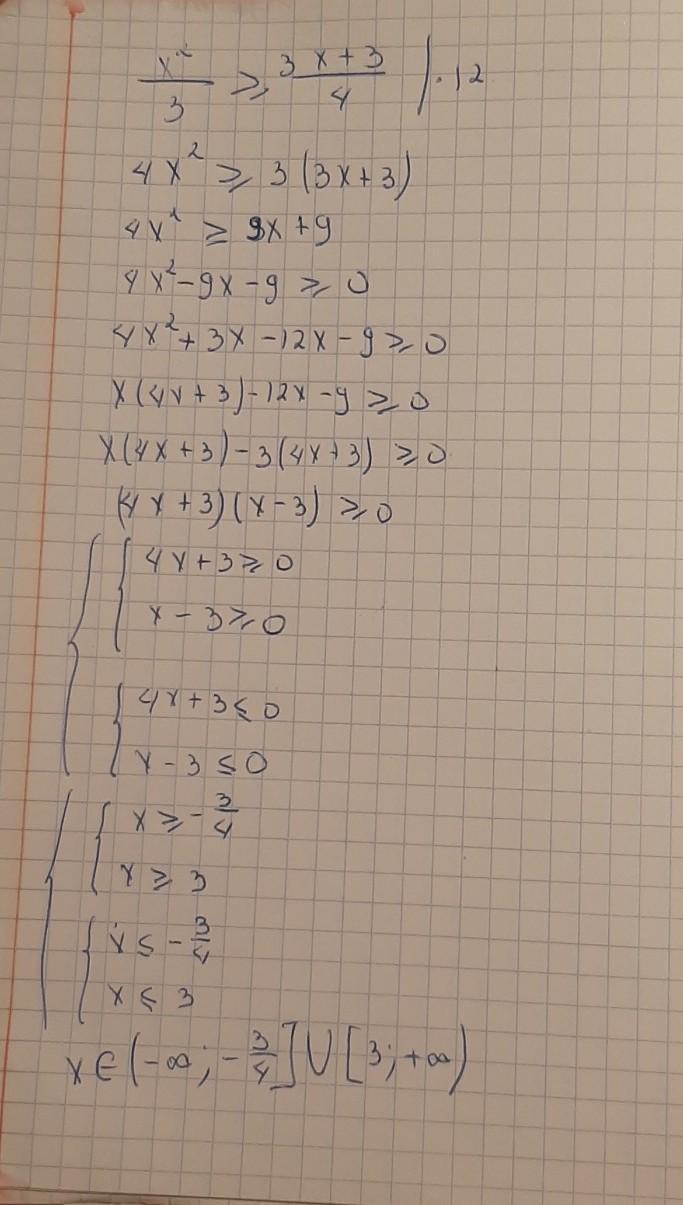 x²/3 ≥ 3x+3/4 | · 12
4x² ≥ 3(3x+3)
4x² ≥ 9x+9
4x²-9x-9 ≥ 0
4x²+3x-12x-9 ≥ 0
x(4x+3)-12x-9 ≥ 0
x(4x+3)-3(4x+3) ≥ 0
(4x+3)(x-3) ≥ 0
{ { 4x+3 ≥ 0
x-3 ≥ 0
{ 4x+3 ≤ 0
x-3 ≤ 0
{ { x ≥ -3/4
x ≥ 3
{ x ≤ -3/4
x ≤ 3
x ∈ (-∞; -3/4] ∪ [3; +∞)